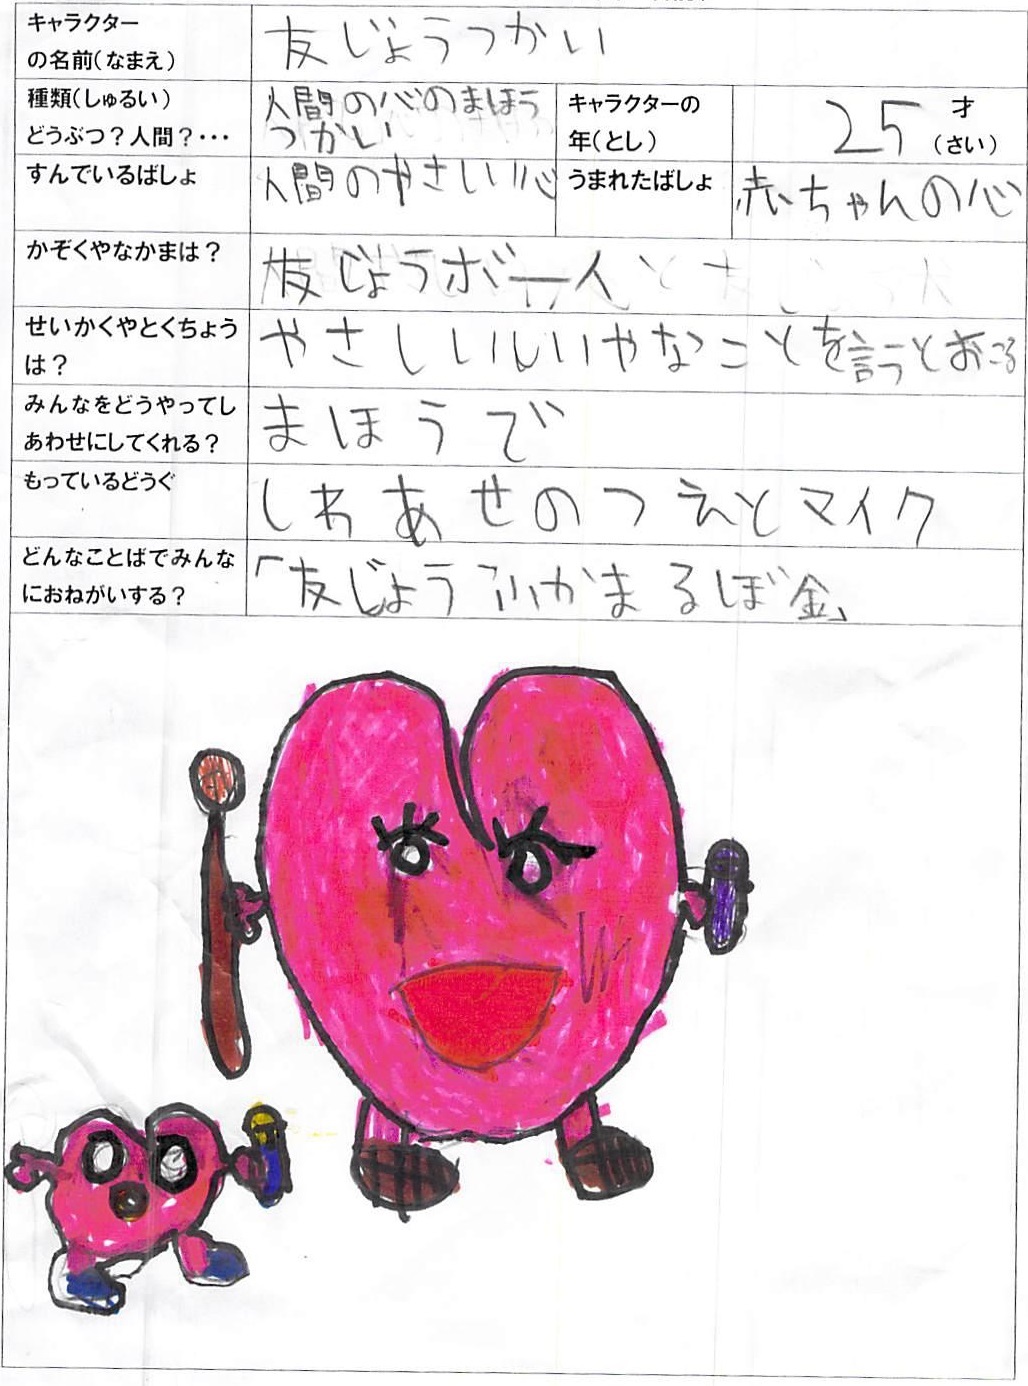 キャラクター
の名前(なまえ)
友じょうつかい
種類(しゅるい)
どうぶつ？人間？・・・
人間の心のまほう
つかい
キャラクターの
年(とし)
25
才
(さい)
すんでいるばしょ
人間のやさしい心
うまれたばしょ
赤ちゃんの心
かぞくやなかまは？
友じょうボー人
せいかくやとくちょう
は？
やさしいいやなことを言うとおこる
みんなをどうやってし
あわせにしてくれる？
まほうで
もっているどうぐ
しわあせのつえとマイク
どんなことばでみんな
におねがいする？
「友じょうふかまるぼ金」